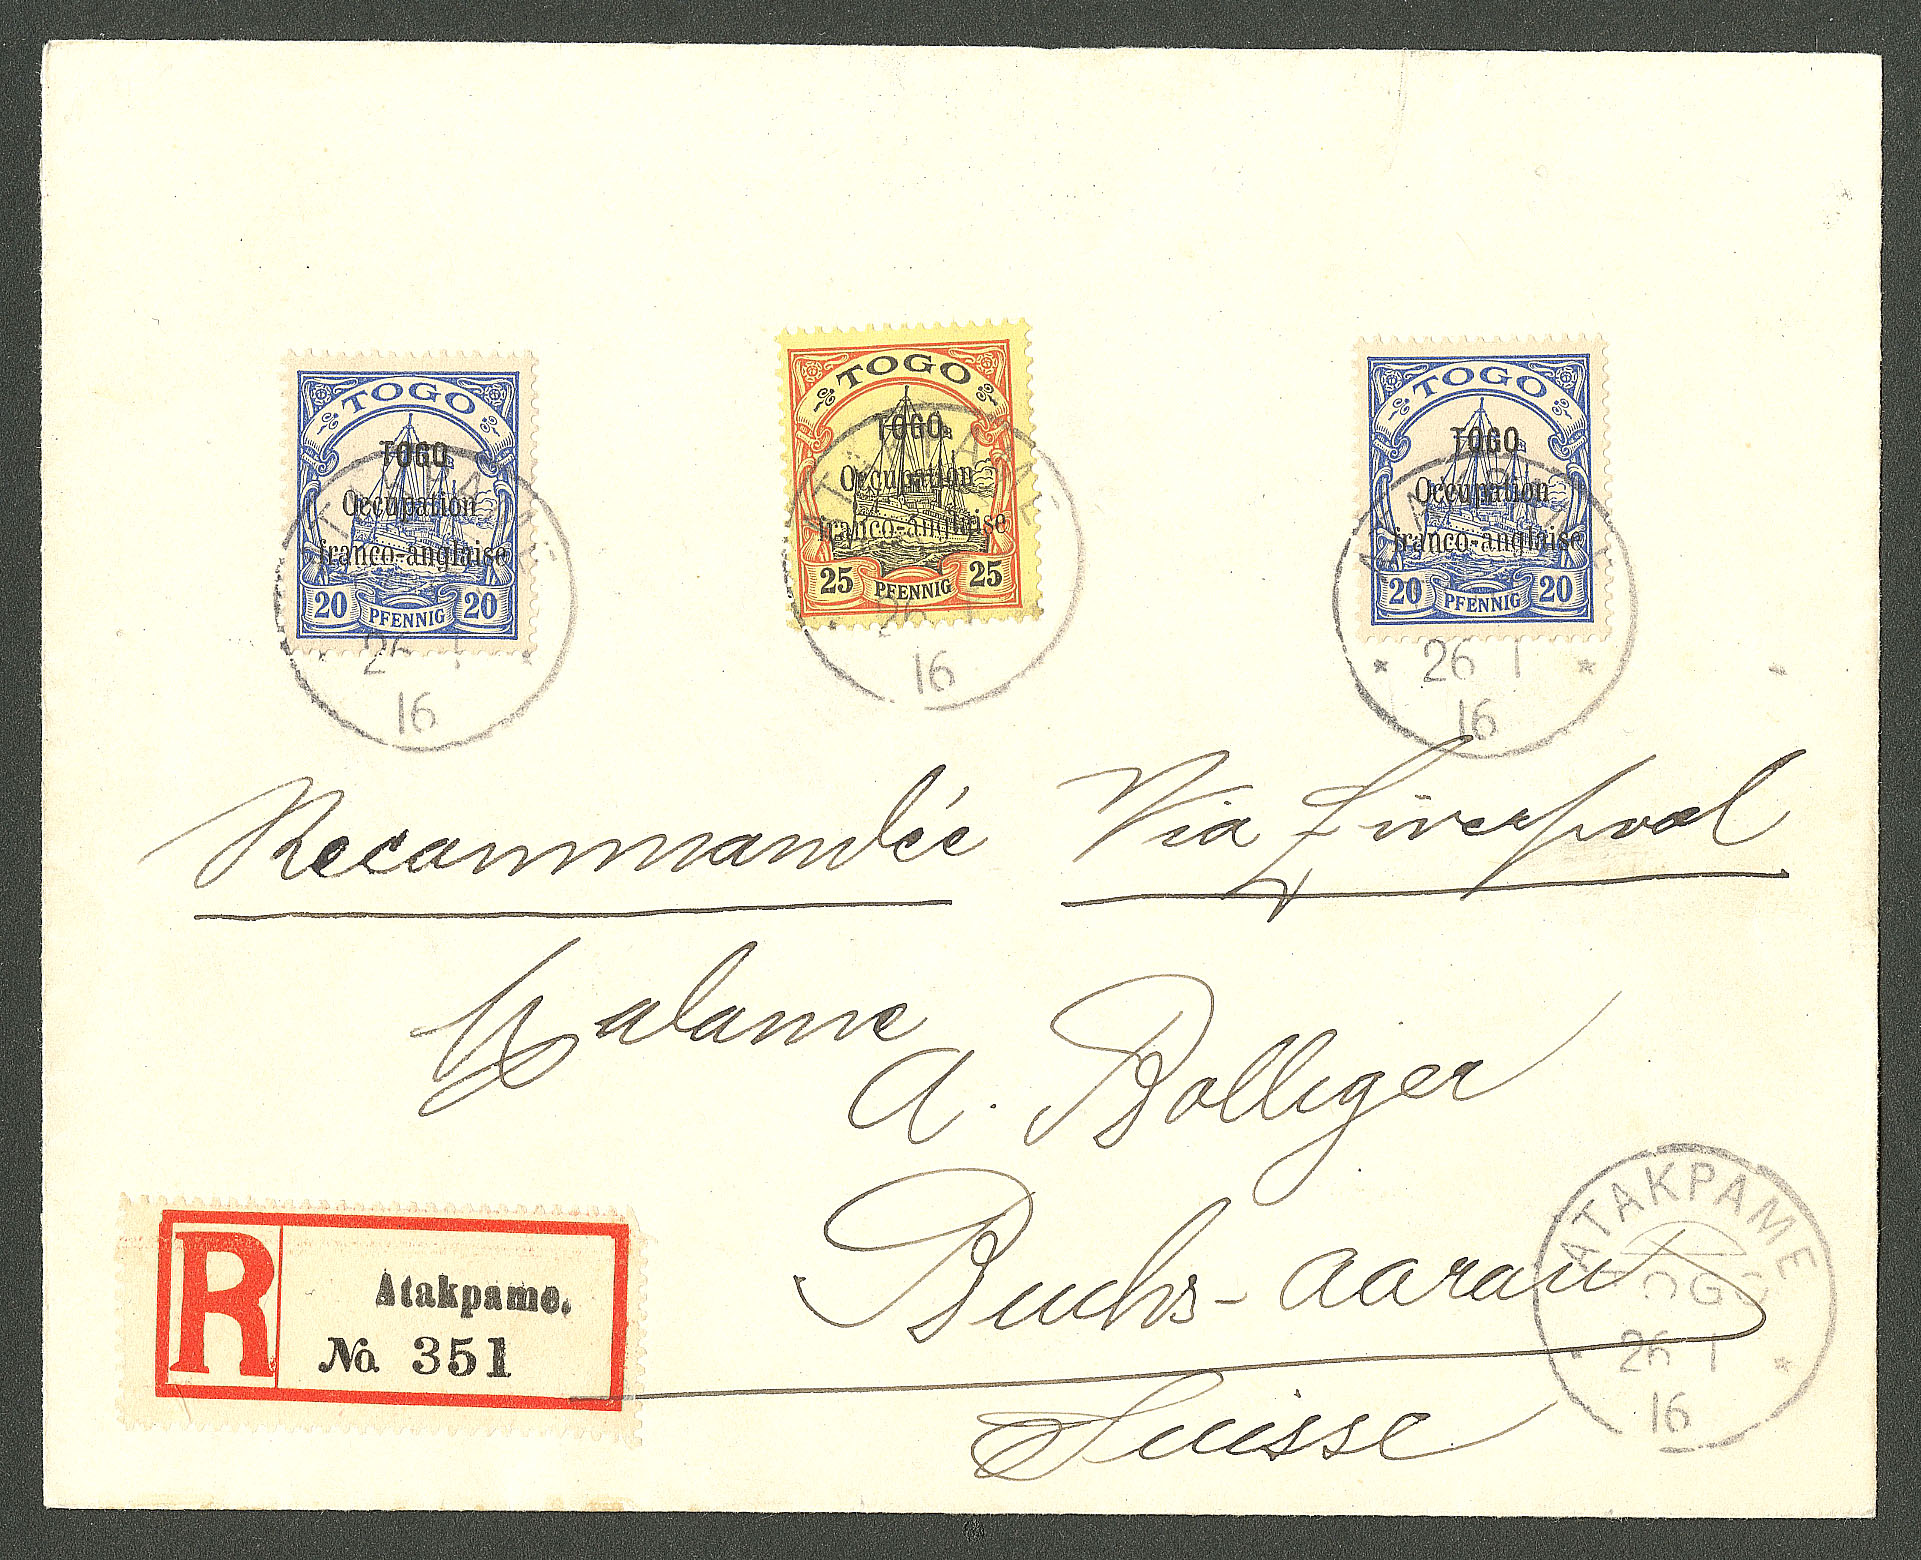 TOGO
TOGO
Occupation
franco-anglaise
20 PFENNIG 20
26 1
16
TOGO
TOGO
Occupation
franco-anglaise
25 PFENNIG 25
26 1
16
TOGO
TOGO
Occupation
franco-anglaise
20 PFENNIG 20
* 26 1 *
16
Recommandée Via Liverpool
Madame
A. Bolliger
Buchs-Aarau
Suisse
R Atakpame.
No. 351
ATAKPAME
TOGO
* 26 1 *
16